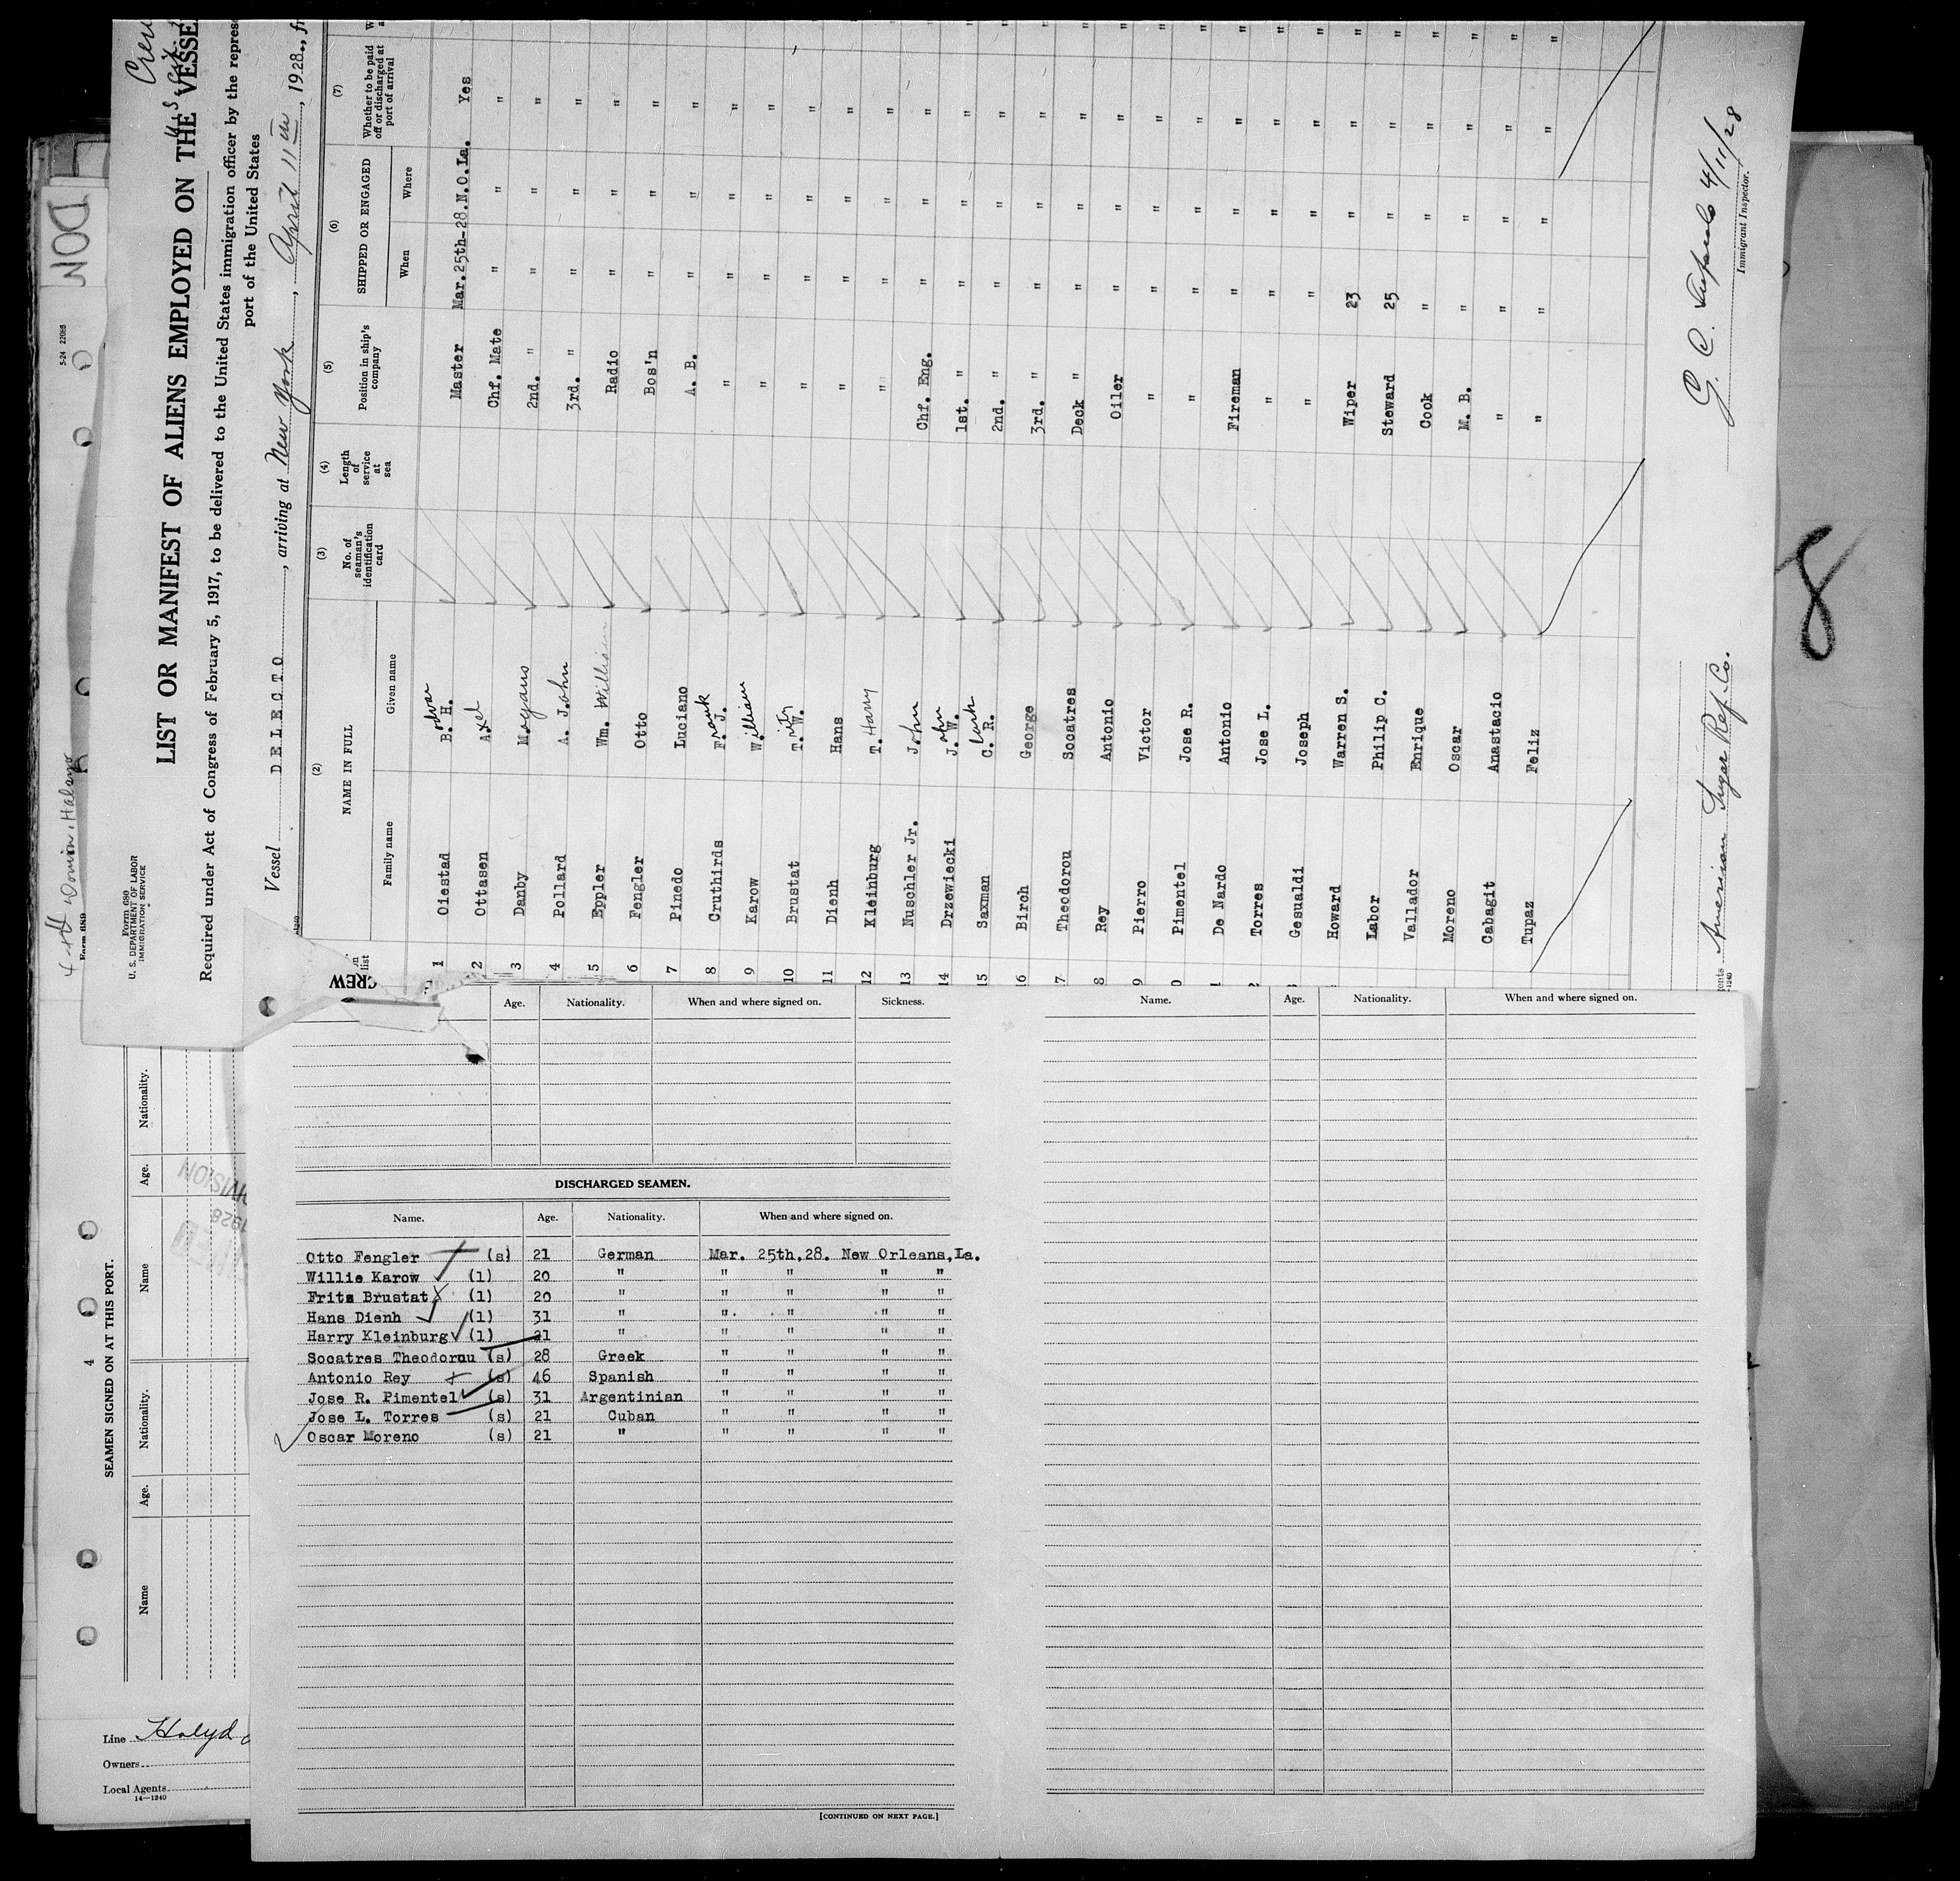 Form 680
U. S. DEPARTMENT OF LABOR
IMMIGRATION SERVICE
LIST OR MANIFEST OF ALIENS EMPLOYED ON THE VESSE
Required under Act of Congress of February 5, 1917, to be delivered to the United States immigration officer by the repres
port of the United States
Vessel DELECTO, arriving at New York, April 11th, 1928, fr
(2) (3) (4) (5) (6) (7)
NAME IN FULL
Family name Given name
No. of seaman's identification card
Length of service at sea
Position in ship's company
SHIPPED OR ENGAGED
When Where
Whether to be paid off or discharged at port of arrival
1 Oiestad B. H. Master Mar.25th-28.N.O.La. Yes
2 Ottasen Axel Chf. Mate " " "
3 Danby Mogans 2nd. " " " "
4 Pollard A. John 3rd. " " " "
5 Eppler Wm. William Radio " " "
6 Fengler Otto Bos'n " " "
7 Pinedo Luciano A. B. " " "
8 Cruthirds F. J. Frank " " " "
9 Karow William " " " "
10 Brustat T. W. " " " "
11 Dienh Hans " " " "
12 Kleinburg T. Harry " " " "
13 Nuschler Jr. John Chf. Eng. " " "
14 Drzewiecki J. W. John 1st. " " " "
15 Saxman C. R. 2nd. " " " "
16 Birch George 3rd. " " " "
17 Theodorou Socatres Deck " " " "
8 Rey Antonio Oiler " " "
9 Pierro Victor " " " "
0 Pimentel Jose R. " " " "
1 De Nardo Antonio Fireman " " "
2 Torres Jose L. " " " "
Gesualdi Joseph " " " "
Howard Warren S. Wiper 23 " "
Labor Philip C. Steward 25 " "
Vallador Enrique Cook " " "
Moreno Oscar M. B. " " "
Cabagit Anastacio " " " "
Tupaz Feliz " " " "
American Sugar Ref. Co.
G. C. 4/11/28
Immigrant Inspector.
8
CREW
Age. Nationality. When and where signed on. Sickness.
Name. Age. Nationality. When and where signed on.
DISCHARGED SEAMEN.
Name. Age. Nationality. When and where signed on.
Otto Fengler (s) 21 German Mar. 25th,28. New Orleans,La.
Willie Karow (l) 20 " " " " "
Frits Brustat (l) 20 " " " " "
Hans Dienh (l) 31 " " " " "
Harry Kleinburg (l) 21 " " " " "
Socatres Theodorou (s) 28 Greek " " " "
Antonio Rey (s) 46 Spanish " " " "
Jose R. Pimentel (s) 31 Argentinian " " " "
Jose L. Torres (s) 21 Cuban " " " "
Oscar Moreno (s) 21 " " " " "
[CONTINUED ON NEXT PAGE.]
5-24 22088
Form 689
4
SEAMEN SIGNED ON AT THIS PORT.
Name Age. Nationality. Name Age. Nationality.
Line
Owners
Local Agents
14—1240